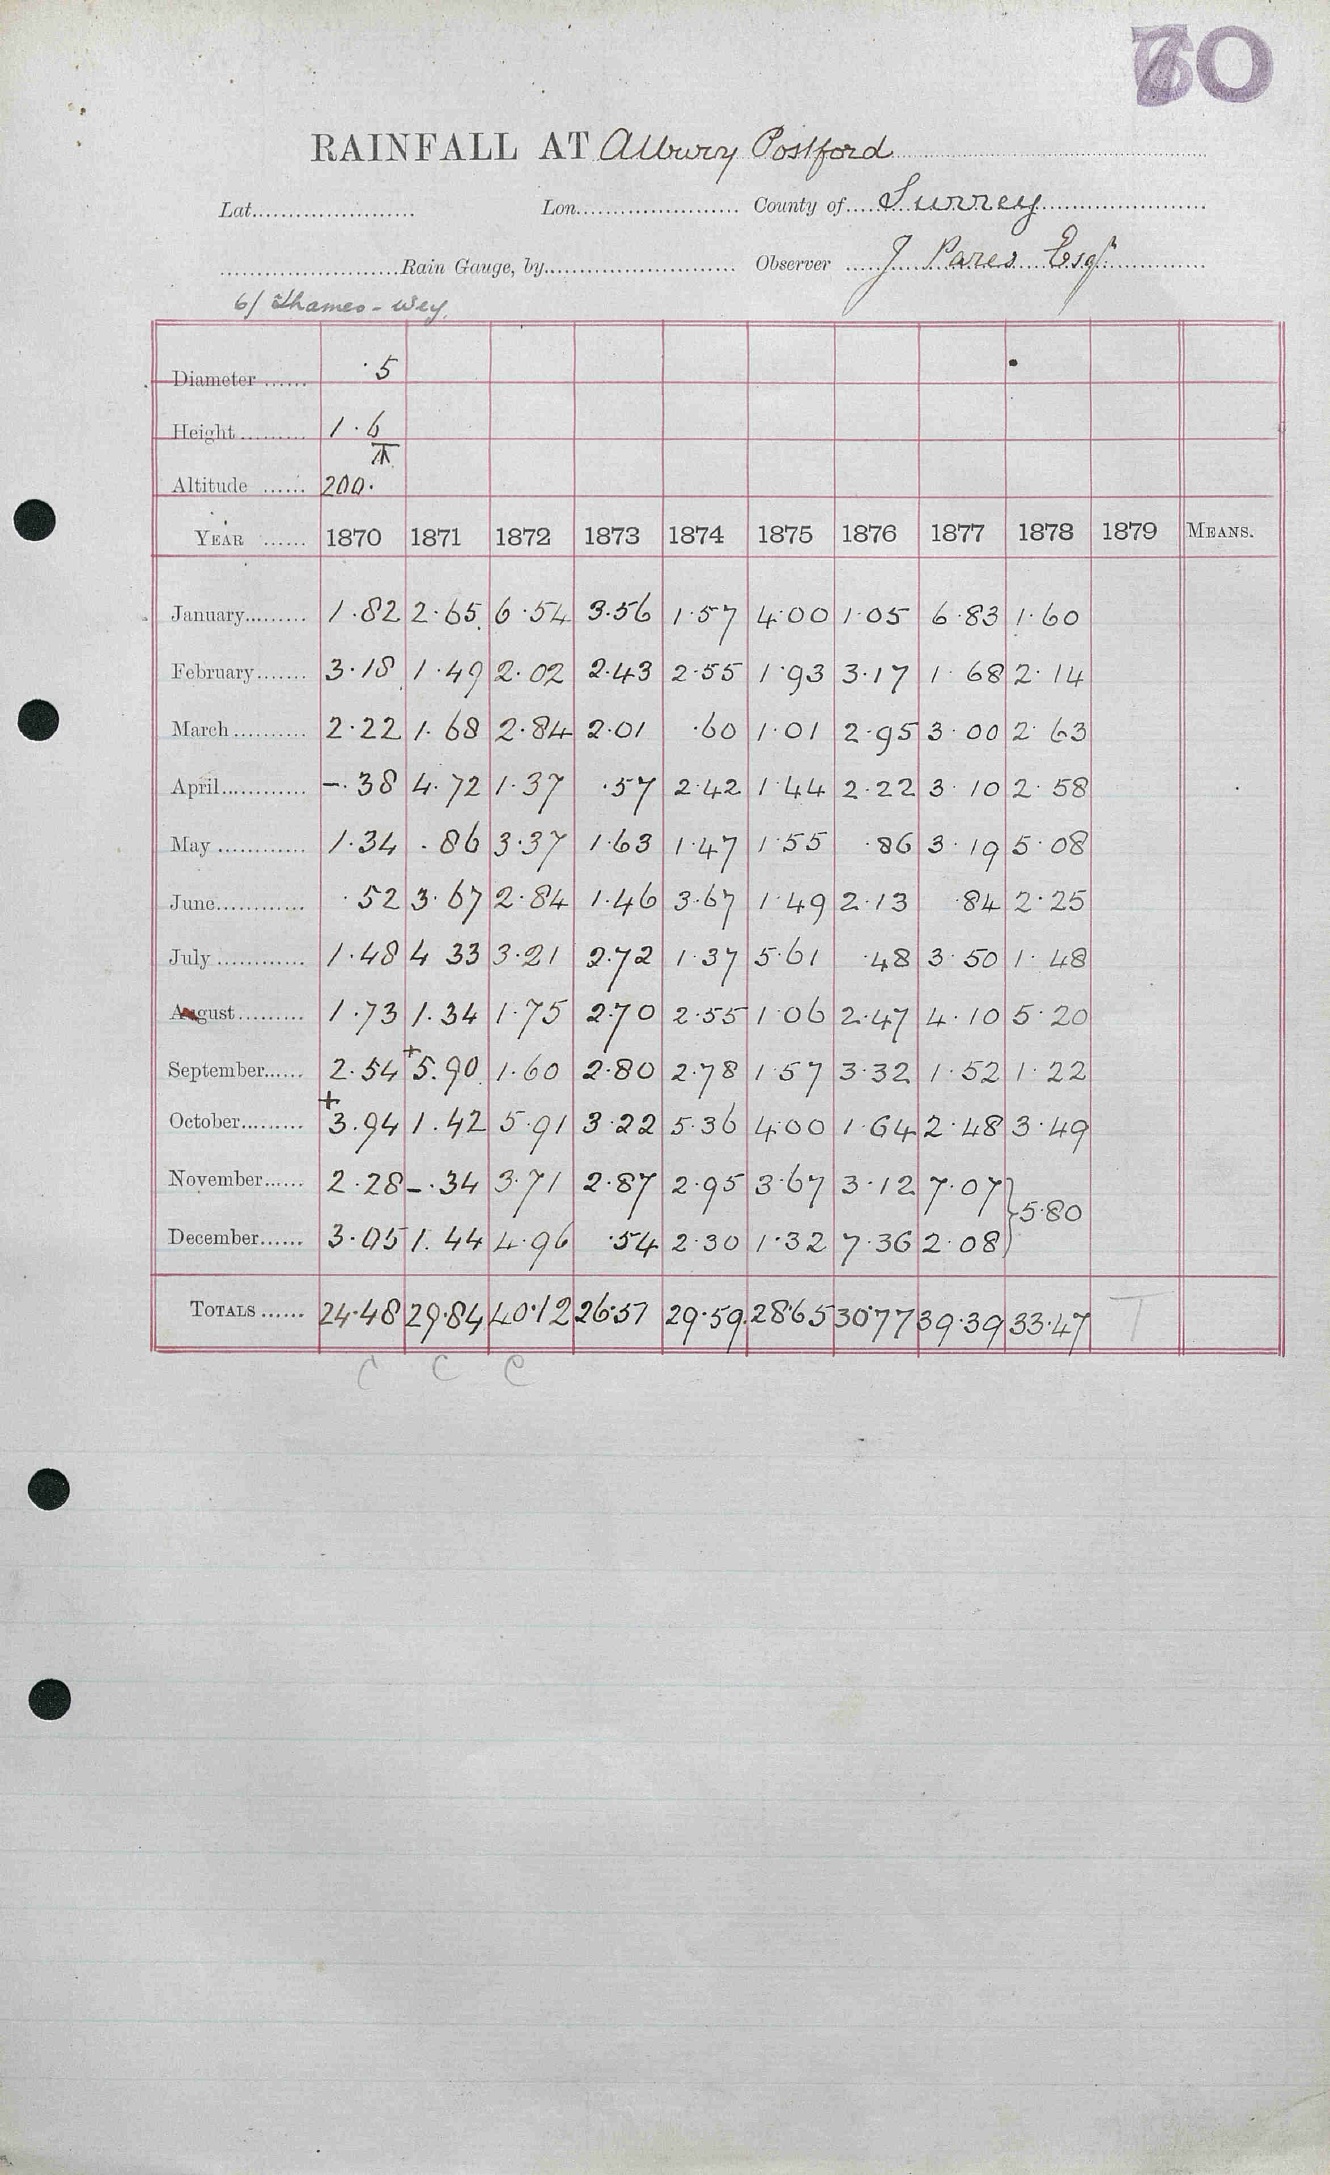 70
RAINFALL AT Albury Postford
Lat. Lon. County of Surrey
Rain Gauge, by Observer J Pares Esqr
6/ Thames - Wey.
Diameter ...... ·5
Height ......... 1·6
Altitude ...... 200·
YEAR ...... 1870 1871 1872 1873 1874 1875 1876 1877 1878 1879 MEANS.
January ......... 1·82 2·65 6·54 3·56 1·57 4·00 1·05 6·83 1·60
February ....... 3·18 1·49 2·02 2·43 2·55 1·93 3·17 1·68 2·14
March .......... 2·22 1·68 2·84 2·01 ·60 1·01 2·95 3·00 2·63
April ............ –·38 4·72 1·37 ·57 2·42 1·44 2·22 3·10 2·58
May ............ 1·34 ·86 3·37 1·63 1·47 1·55 ·86 3·19 5·08
June ............ ·52 3·67 2·84 1·46 3·67 1·49 2·13 ·84 2·25
July ............ 1·48 4 33 3·21 2·72 1·37 5·61 ·48 3·50 1·48
August ......... 1·73 1·34 1·75 2·70 2·55 1·06 2·47 4·10 5·20
September ...... 2·54 +5·90 1·60 2·80 2·78 1·57 3·32 1·52 1·22
October ......... +3·94 1·42 5·91 3·22 5·36 4·00 1·64 2·48 3·49
November ...... 2·28 –·34 3·71 2·87 2·95 3·67 3·12 7·07 } 5·80
December ...... 3·05 1·44 4·96 ·54 2·30 1·32 7·36 2·08
TOTALS ...... 24·48 29·84 40·12 26·51 29·59 28·65 30·77 39·39 33·47 T
C C C